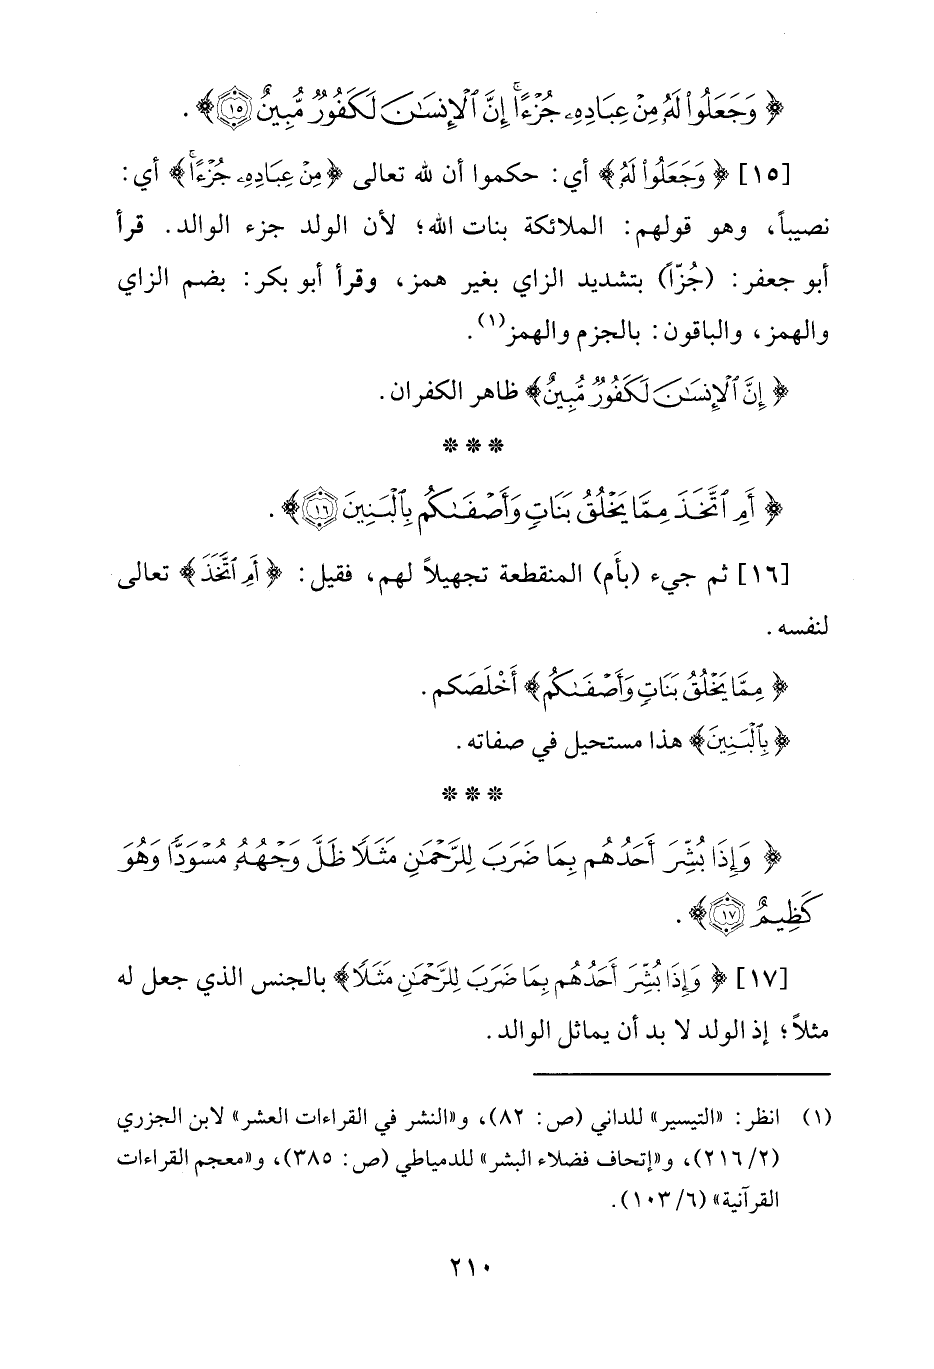 ﴿ وَجَعَلُوا۟ لَهُۥ مِنْ عِبَادِهِۦ جُزْءًا ۚ إِنَّ ٱلْإِنسَـٰنَ لَكَفُورٌ مُّبِينٌ ۝١٥ ﴾ .
[١٥] ﴿ وَجَعَلُوا۟ لَهُۥ ﴾ أي: حكموا أن لله تعالى ﴿مِنْ عِبَادِهِۦ جُزْءًا ۚ﴾ أي:
نصيباً، وهو قولهم: الملائكة بنات الله؛ لأن الولد جزء الوالد. قرأ
أبو جعفر: (جُزّاً) بتشديد الزاي بغير همز، وقرأ أبو بكر: بضم الزاي
والهمز، والباقون: بالجزم والهمز(١).
﴿ إِنَّ ٱلْإِنسَـٰنَ لَكَفُورٌ مُّبِينٌ﴾ ظاهر الكفران.
* * *
﴿ أَمِ ٱتَّخَذَ مِمَّا يَخْلُقُ بَنَاتٍ وَأَصْفَىٰكُم بِٱلْبَنِينَ ۝١٦ ﴾ .
[١٦] ثم جيء (بأم) المنقطعة تجهيلاً لهم، فقيل: ﴿ أَمِ ٱتَّخَذَ ﴾ تعالى
لنفسه.
﴿ مِمَّا يَخْلُقُ بَنَاتٍ وَأَصْفَىٰكُم﴾ أَخْلَصَكم.
﴿بِٱلْبَنِينَ﴾ هذا مستحيل في صفاته.
* * *
﴿ وَإِذَا بُشِّرَ أَحَدُهُم بِمَا ضَرَبَ لِلرَّحْمَـٰنِ مَثَلًا ظَلَّ وَجْهُهُۥ مُسْوَدًّا وَهُوَ
كَظِيمٌ ۝١٧ ﴾ .
[١٧] ﴿ وَإِذَا بُشِّرَ أَحَدُهُم بِمَا ضَرَبَ لِلرَّحْمَـٰنِ مَثَلًا﴾ بالجنس الذي جعل له
مثلاً؛ إذ الولد لا بد أن يماثل الوالد.
(١) انظر: «التيسير» للداني (ص: ٨٢)، و«النشر في القراءات العشر» لابن الجزري
(٢/ ٢١٦)، و«إتحاف فضلاء البشر» للدمياطي (ص: ٣٨٥)، و«معجم القراءات
القرآنية» (٦/ ١٠٣).
٢١٠